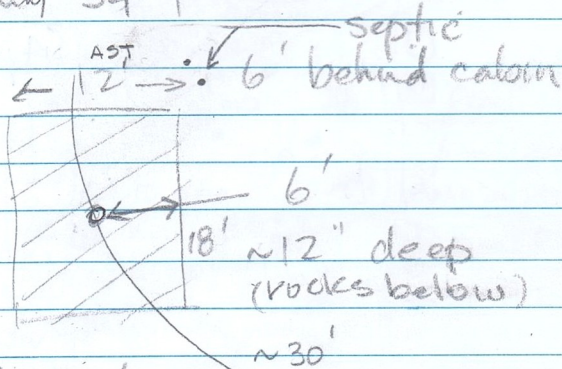 septic
AST
12' 6' behind cabin
6'
18' ~12" deep
(rocks below)
~30'